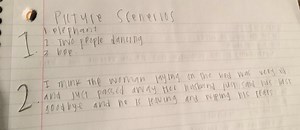 Picture Scenarios
1
1 elephant
2 two people dancing
3
2
I think the woman laying on the bed was very
and just passed away. Her husband just said his last
goodbys and he is leaving and wiping his tears